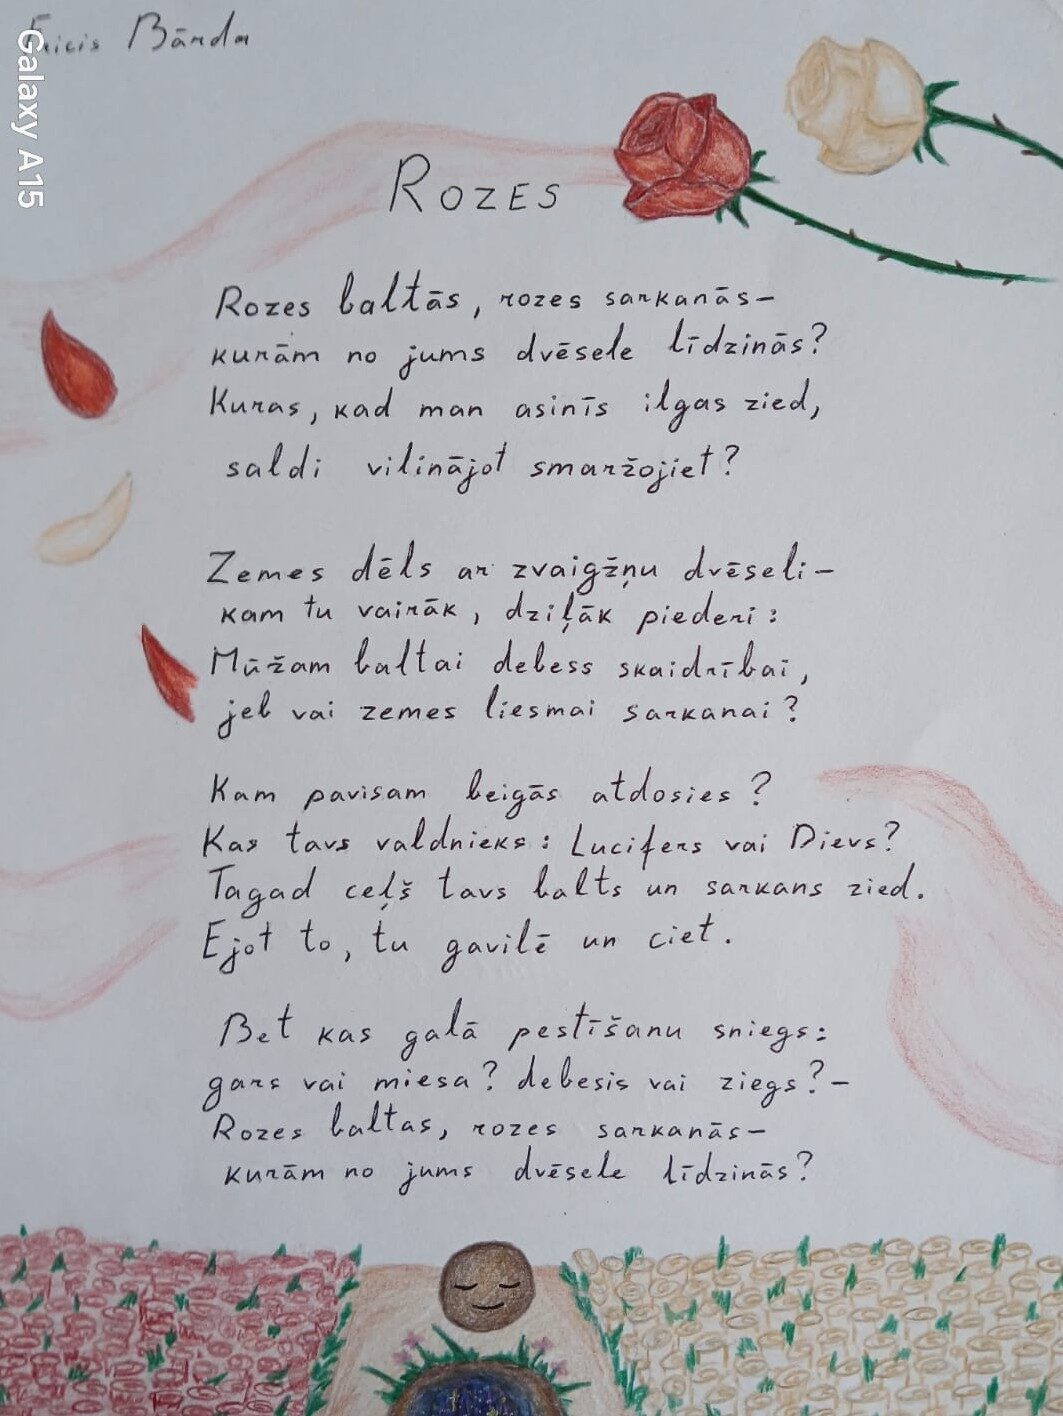 Fricis Bārda
Galaxy A15
ROZES
Rozes baltās, rozes sarkanās–
kurām no jums dvēsele līdzinās?
Kuras, kad man asinīs ilgas zied,
saldi vilinājot smaržojiet?
Zemes dēls ar zvaigžņu dvēseli–
kam tu vairāk, dziļāk piederi:
Mūžam baltai debess skaidrībai,
jeb vai zemes liesmai sarkanai?
Kam pavisam beigās atdosies?
Kas tavs valdnieks: Lucifers vai Dievs?
Tagad ceļš tavs balts un sarkans zied.
Ejot to, tu gavilē un ciet.
Bet kas galā pestīšanu sniegs:
gars vai miesa? debesis vai ziegs?–
Rozes baltas, rozes sarkanās–
kurām no jums dvēsele līdzinās?